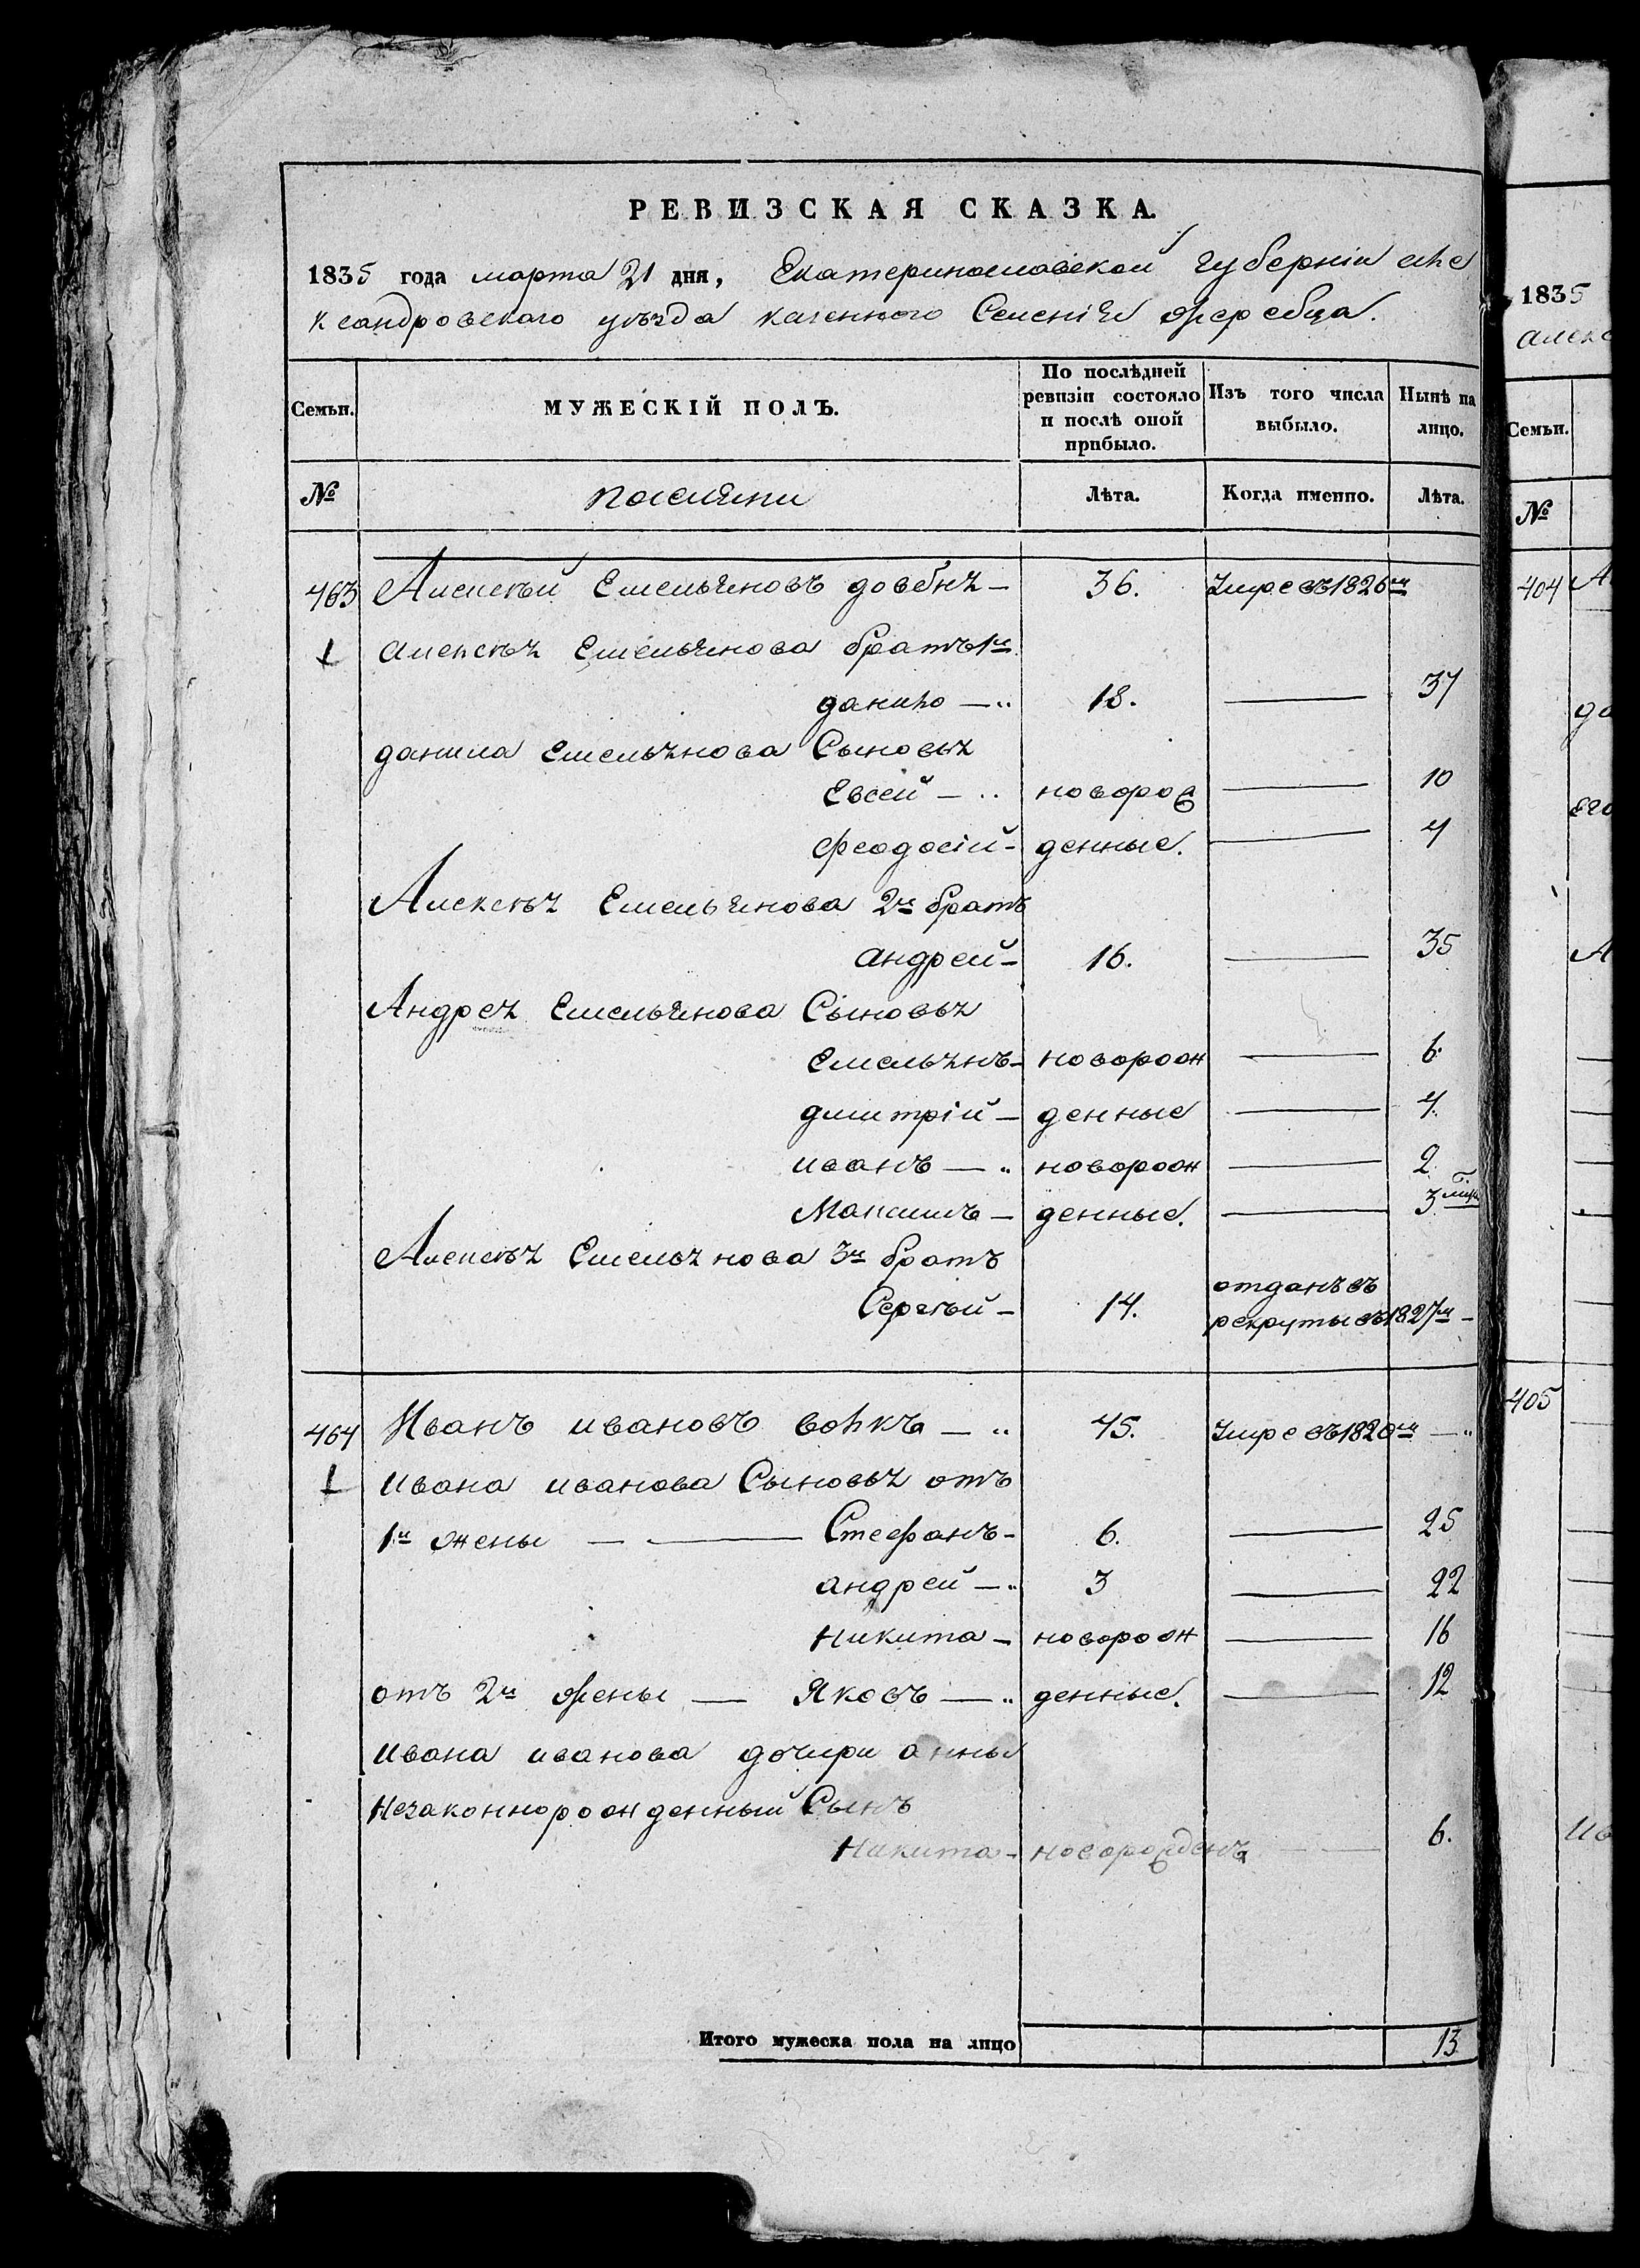 РЕВИЗСКАЯ СКАЗКА.
1835 года марта 21 дня, Екатеринославской губерніи але
ксандровского уѣзда казенного Селенія жеребца.
Семьи. МУЖЕСКІЙ ПОЛЪ. По послѣдней ревизіи состояло и послѣ оной прибыло. Изъ того числа выбыло. Нынѣ на лицо.
№ поселяни Лѣта. Когда именно. Лѣта.
463 Алексѣй Емельяновъ довбня — 36. Умре въ 1826м
алексѣя Емельянова братъ 1й
данило — 18. — 37
данила Емельянова Сыновья
Евсей — новорож — 10
феодосій — денные. — 4
Алексѣя Емельянова 2й братъ
андрей — 16. — 35
Андрея Емельянова Сыновья
Емельянъ — новорож — 6.
дмитрій — денные — 4.
иванъ — новорож — 2
Максимъ — денные. — 3 мѣс
Алексѣя Емельянова 3й братъ
Сергѣй — 14. отданъ въ
рекруты въ 1827м —
464 Иванъ ивановъ волкъ — 45. Умре въ 1820м —
ивана иванова Сыновья отъ
1й жены — Стефанъ — 6. — 25
андрей — 3 — 22
Никита — новорож — 16
отъ 2й жены — Яковъ — денные. — 12
ивана иванова дочери анны
Незаконнорожденный Сынъ
Никита — новорожденъ — 6.
Итого мужеска пола на лицо 13
1835
алекс
Семьи.
№
404
405